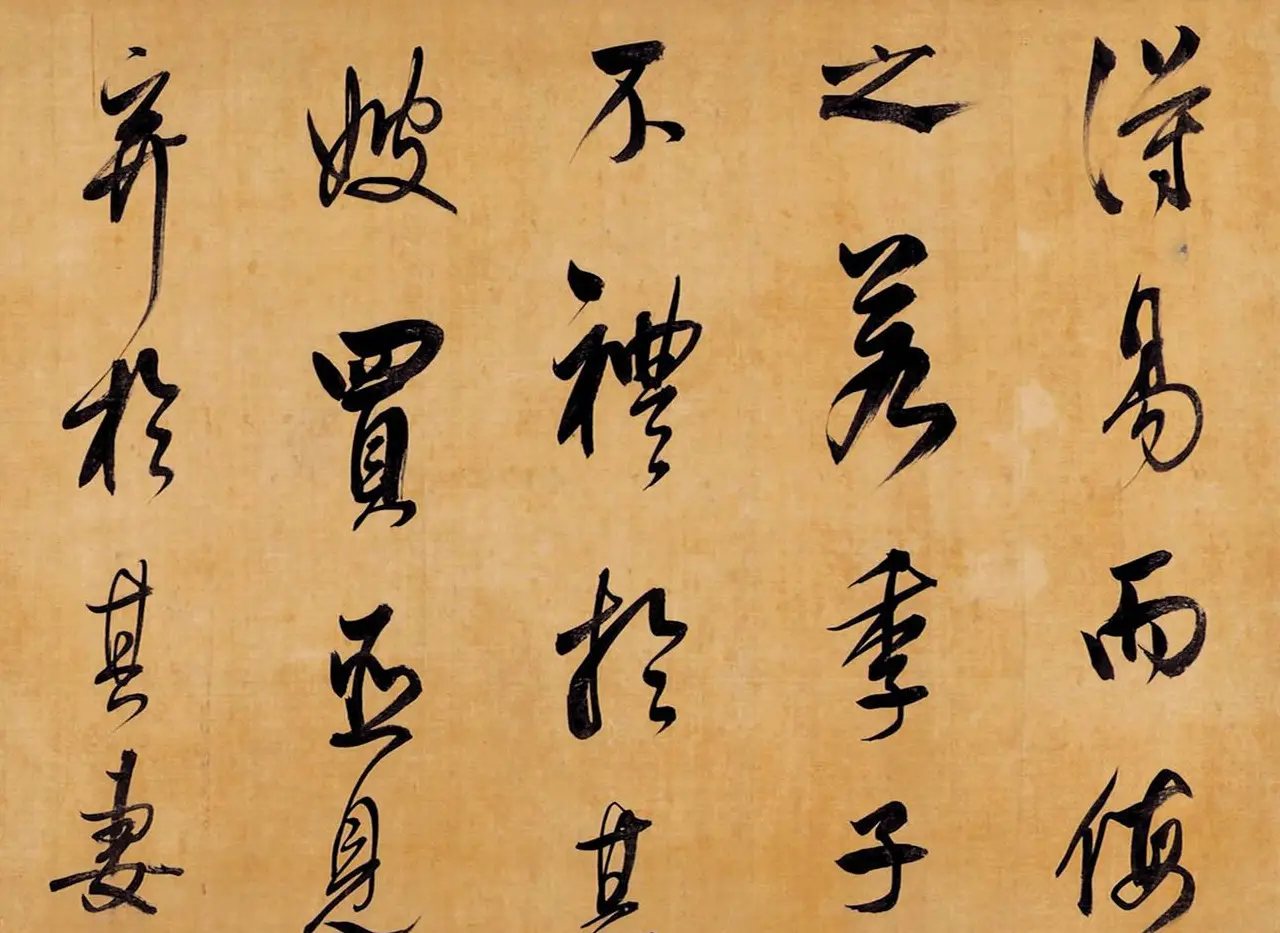 得易而侮
之若季子
不禮於其
嫂買臣見
棄於其妻